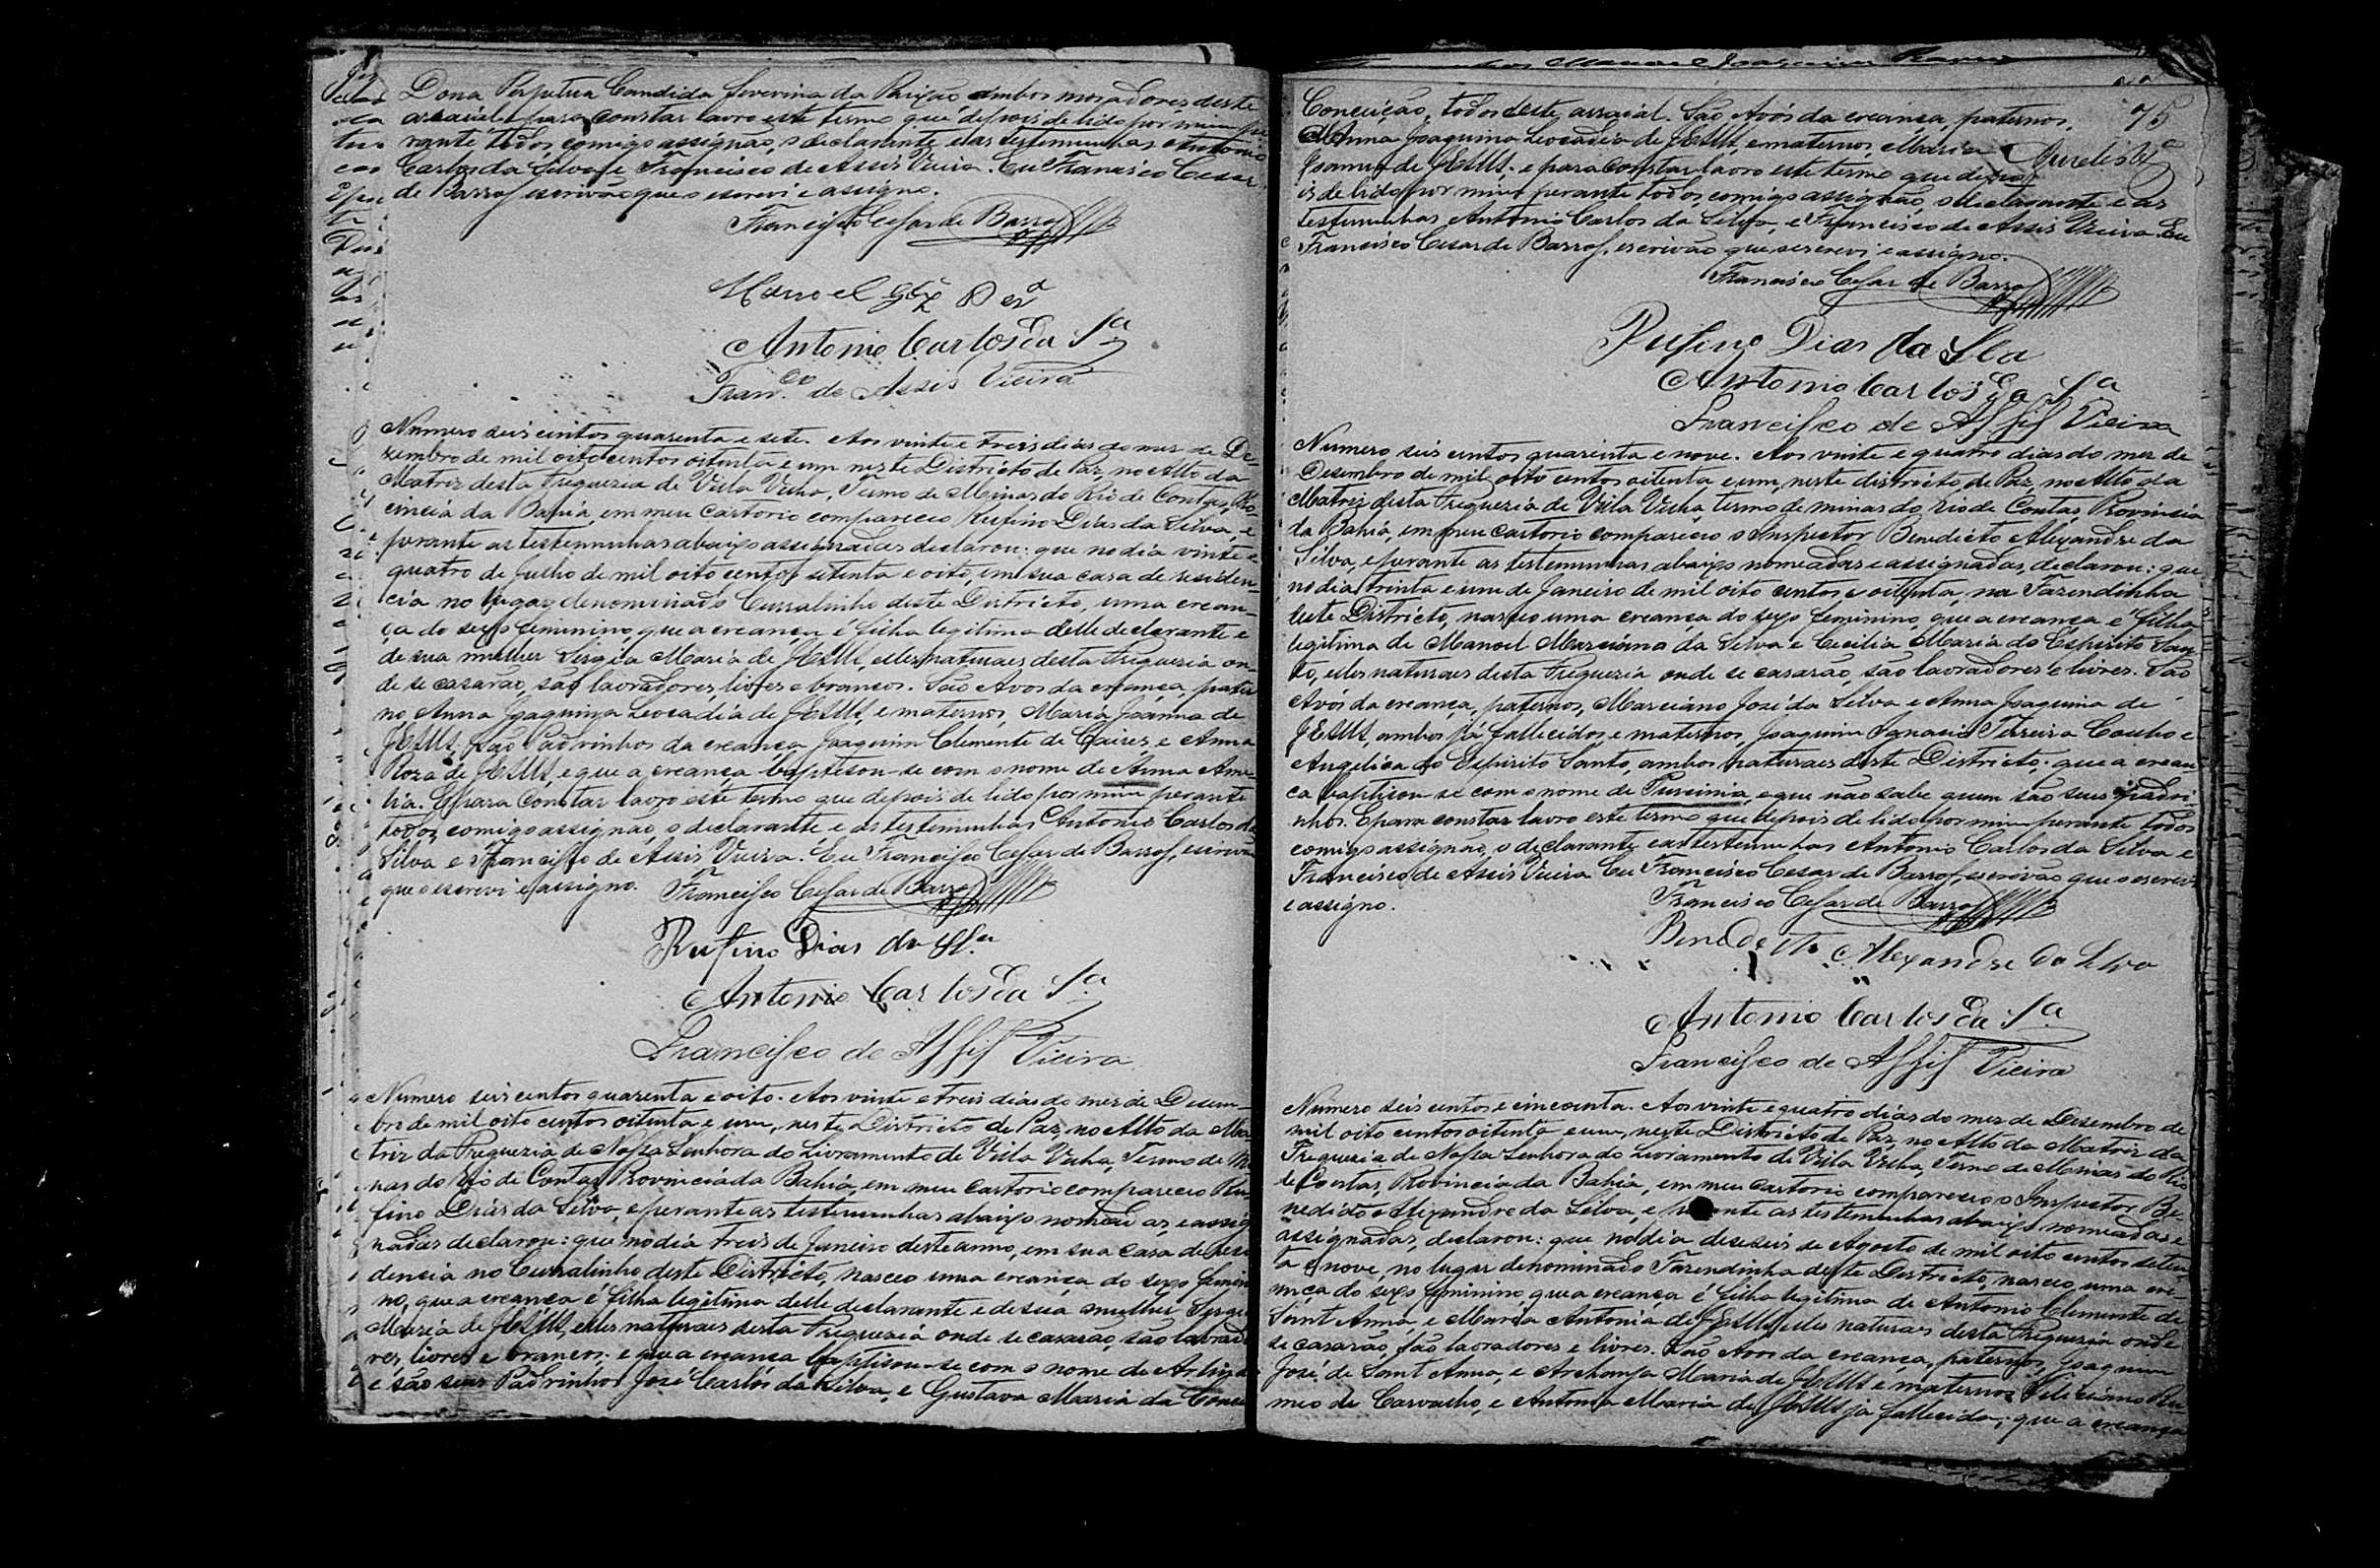 Dona Perpetua Candida Severina da Paixão ambos moradores deste
arraial e para constar lavro este termo que depois de lido por mim pe
rante todos comigo assignão, o declarante e as testemunhas Antonio
Carlos da Silva, e Francisco de Assis Vieira. Eu Francisco Cesar
de Barros escrivão que o escrevi e assigno.
Francisco Cesar de Barros
Manoel
Antonio Carlos da Sa
Franco de Assis Vieira
Numero seis centos quarenta e sete. Aos vinte e treis dias do mes de De-
zembro de mil oito centos oitenta e um neste Districto de Paz, no Alto da
Matriz desta Freguezia de Villa Velha, Termo de Minas do Rio de Contas, Pro-
vincia da Bahia, em meu Cartorio compareceo Rufino Dias da Silva, e
perante as testemunhas abaixo assignadas declarou: que no dia vinte e
quatro de Julho de mil oito centos setenta e oito, em sua casa de residen-
cia no lugar denominado Curralinho deste Districto, uma crean-
ça do sexo feminino, que a creança é filha legitima delle declarante e
de sua mulher Sergia Maria de JESUS, elles naturaes desta Freguezia on-
de se casarão, são lavradores, livres e brancos. São Avos da creança, pater
no, Anna Joaquina Leocadia de JESUS, e maternos, Maria Joanna de
JESUS, são Padrinhos da creança Joaquim Clemente de Caires, e Anna
Roza de JESUS, e que a creança baptisou-se com o nome de Anna Ame-
lia. E para constar lavro este termo que depois de lido por mim perante
todos, comigo assignão, o declarante e as testemunhas Antonio Carlos da
Silva e Francisco de Assis Vieira. Eu Francisco Cesar de Barros, escrivão
que o escrevi e assigno. Francisco Cesar de Barros
Rufino Dias da Sa
Antonio Carlos da Sa
Francisco de Assis Vieira
Numero seis centos quarenta e oito. Aos vinte e treis dias do mes de Desem-
bro de mil oito centos oitenta e um, neste Districto de Paz, no Alto da Ma
triz da Freguezia de Nossa Senhora do Livramento de Villa Velha, Termo de Mi
nas do Rio de Contas Provincia da Bahia, em meu Cartorio compareceo Ru
fino Dias da Silva, e perante as testemunhas abaixo nomeadas, e assig
nadas declarou: que no dia treis de Janeiro deste anno, em sua casa de resi
dencia no Curralinho deste Districto, nasceo uma creança do sexo femini
no, que a creança é filha legitima delle declarante e de sua mulher Sergia
Maria de JESUS, elles naturaes desta Freguezia onde se casarão, são lavrado
res, livres e brancos; e que a creança baptisou-se com o nome de
e são seus Padrinhos José Carlos da Silva, e Gustava Maria da Concei
75
Conceição, todos deste arraial. São Avós da creança, paternos,
Anna Joaquina Leocadia de JESUS, e maternos, Maria
Joanna de JESUS. e para constar lavro este termo que depo
is de lido por mim perante todos comigo assignão, o declarante e as
testemunhas Antonio Carlos da Silva, e Francisco de Assis Vieira. Eu
Francisco Cesar de Barros, escrivão que o escrevi e assigno.
Francisco Cesar de Barros
Rufino Dias da Sla
Antonio Carlos da Sa
Francisco de Assis Vieira
Numero seis centos quarenta e nove. Aos vinte e quatro dias do mez de
Desembro de mil oito centos oitenta e um, neste districto de Paz, no Alto da
Matriz desta Freguezia de Villa Velha, termo de minas do rio de Contas, Provincia
da Bahia, em meu cartorio compareceo o Inspector Benedicto Alexandre da
Silva, e perante as testemunhas abaixo nomeadas e assignadas, declarou: que
no dia trinta e um de Janeiro de mil oito centos e oitenta, na Fazendinha
deste Districto, nasceo uma creança do sexo feminino, que a creança é filha
legitima de Manoel Marciano da Silva e Cecilia Maria do Espirito San
to, elles naturaes desta Freguezia onde se casarão, são lavradores e livres. São
Avós da creança, paternos, Marciano José da Silva e Anna Joaquina de
JESUS, ambos já fallecidos, e maternos, Joaquim Ignacio Teixeira Coelho e
Angelica do Espirito Santo, ambos naturaes deste Districto; que a crean
ca baptisou-se com o nome de e que não sabe quem são seus padri-
nhos. E para constar lavro este termo que depois de lido por mim perante todos
comigo assignão, o declarante e as testemunhas Antonio Carlos da Silva e
Francisco de Assis Vieira Eu Francisco Cesar de Barros, escrivão que o escrevi
e assigno. Francisco Cesar de Barros
Benedicto Alexandre da Silva
Antonio Carlos da Sa
Francisco de Assis Vieira
Numero seis centos e cincoenta. Aos vinte e quatro dias do mez de Desembro de
mil oito centos oitenta e um, neste Districto de Paz, no Alto da Matriz da
Freguezia de Nossa Senhora do Livramento de Villa Velha, Termo de Minas do Rio
de Contas, Provincia da Bahia, em meu Cartorio compareceo o Inspector Be-
nedicto Alexandre da Silva, e perante as testemunhas abaixo nomeadas e
assignadas, declarou: que no dia deseseis de Agosto de mil oito centos seten
ta e nove, no lugar denominado Fazendinha deste Districto, nasceo uma cre
ança do sexo feminino, que a creança é filha legitima de Antonio Clemente de
Sant Anna, e Maria Antonia de JESUS, elles naturaes desta Freguezia onde
se casarão, são lavradores e livres. São Avos da creança, paternos, Joaquim
José de Sant Anna, e Archanja Maria de JESUS e maternos
de Carvalho, e Antonia Maria de JESUS já fallecida; que a creança